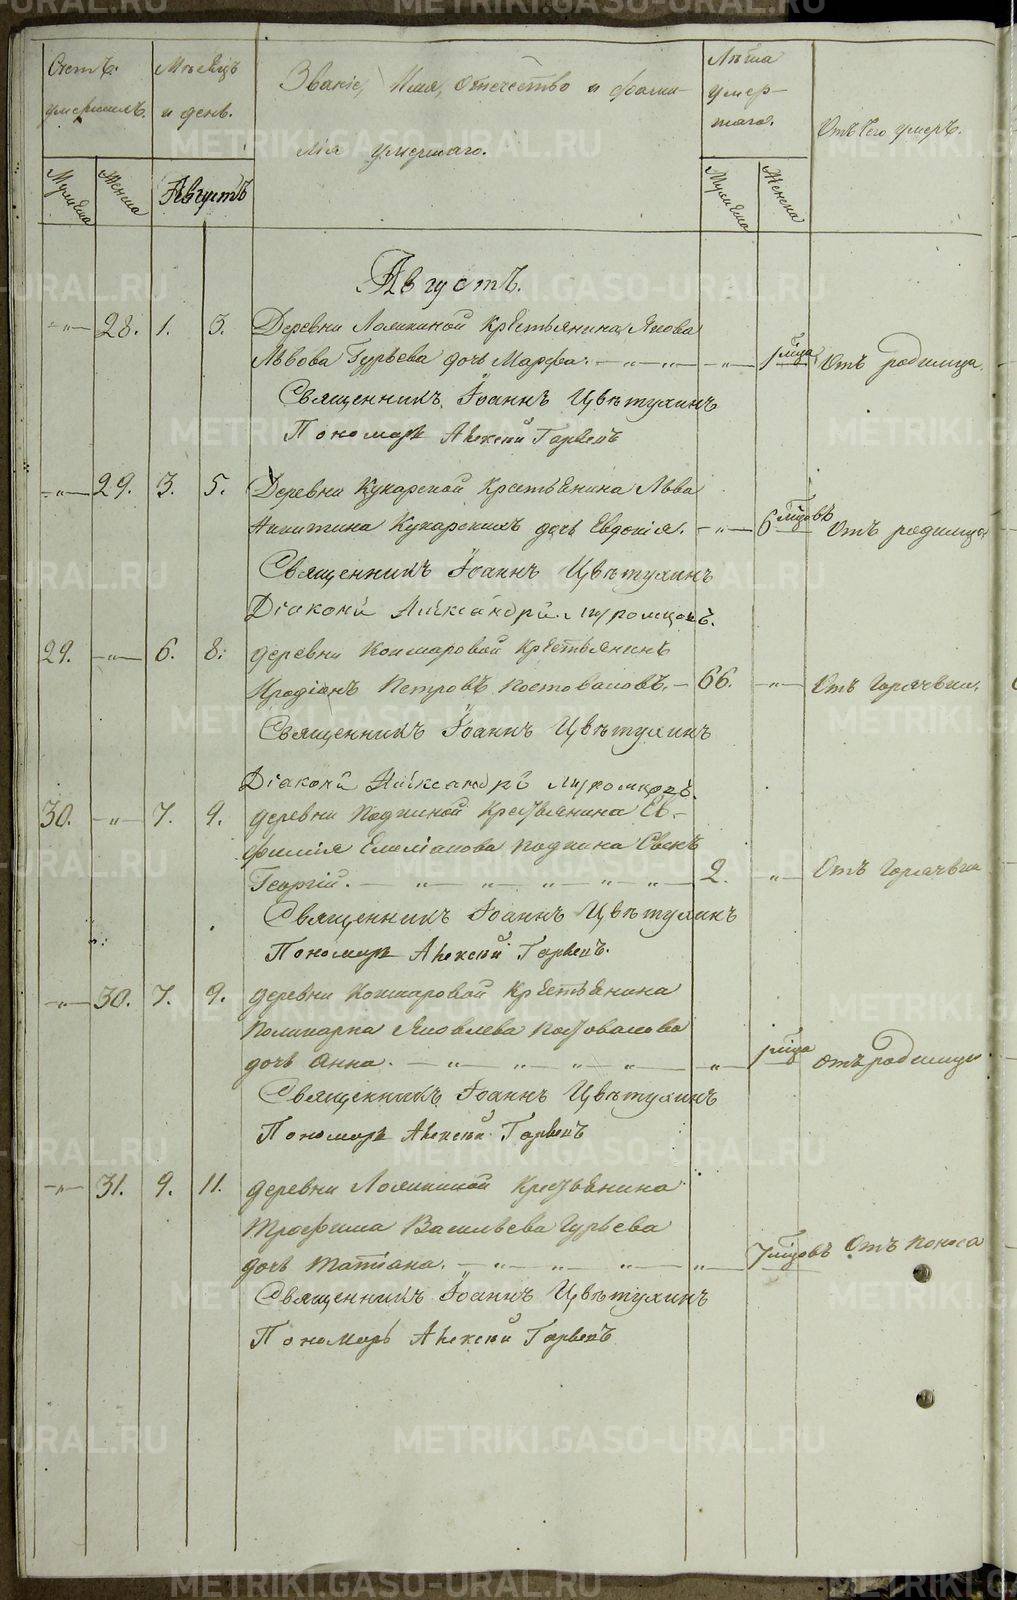 Счетъ умершихъ.
Мѣсяцъ и день.
Званіе, Имя, отечество и фами-
лія умершаго.
Лѣта умер-
шаго.
Отъ чего умеръ.
Мужеска
Женска
Августъ
Мужеска
Женска
Августъ.
28. 1. 3. Деревни Ломкиной Крестьянина Якова
Львова Гурьева дочь Марѳа. 1 мѣсяца Отъ родимца.
Священникъ Іоаннъ Цвѣтухинъ
Пономарь Алексѣй
29. 3. 5. Деревни Кукарской Крестьянина Льва
Никитина Кукарскихъ дочь Евдокія. 6 мѣсяцовъ Отъ родимца
Священникъ Іоаннъ Цвѣтухинъ
Діаконъ Александръ
29. 6. 8. деревни Кошкаровой Крестьянинъ
Иродіонъ Петровъ Постоваловъ. 66. Отъ Горячки.
Священникъ Іоаннъ Цвѣтухинъ
Діаконъ Александръ
30. 7. 9. деревни Крестьянина Ев-
фимія Емеліанова сынъ
Георгій. 2. Отъ Горячки
Священникъ Іоаннъ Цвѣтухинъ
Пономарь Алексѣй
30. 7. 9. деревни Кошкаровой Крестьянина
Поликарпа Яковлева Постовалова
дочь Анна. 1 мѣсяца отъ родимца
Священникъ Іоаннъ Цвѣтухинъ
Пономарь Алексѣй
31. 9. 11. деревни Ломкиной Крестьянина
Трофима Васильева Гурьева
дочь Татіана. 7 мѣсяцовъ Отъ поноса
Священникъ Іоаннъ Цвѣтухинъ
Пономарь Алексѣй
METRIKI.GASO-URAL.RU